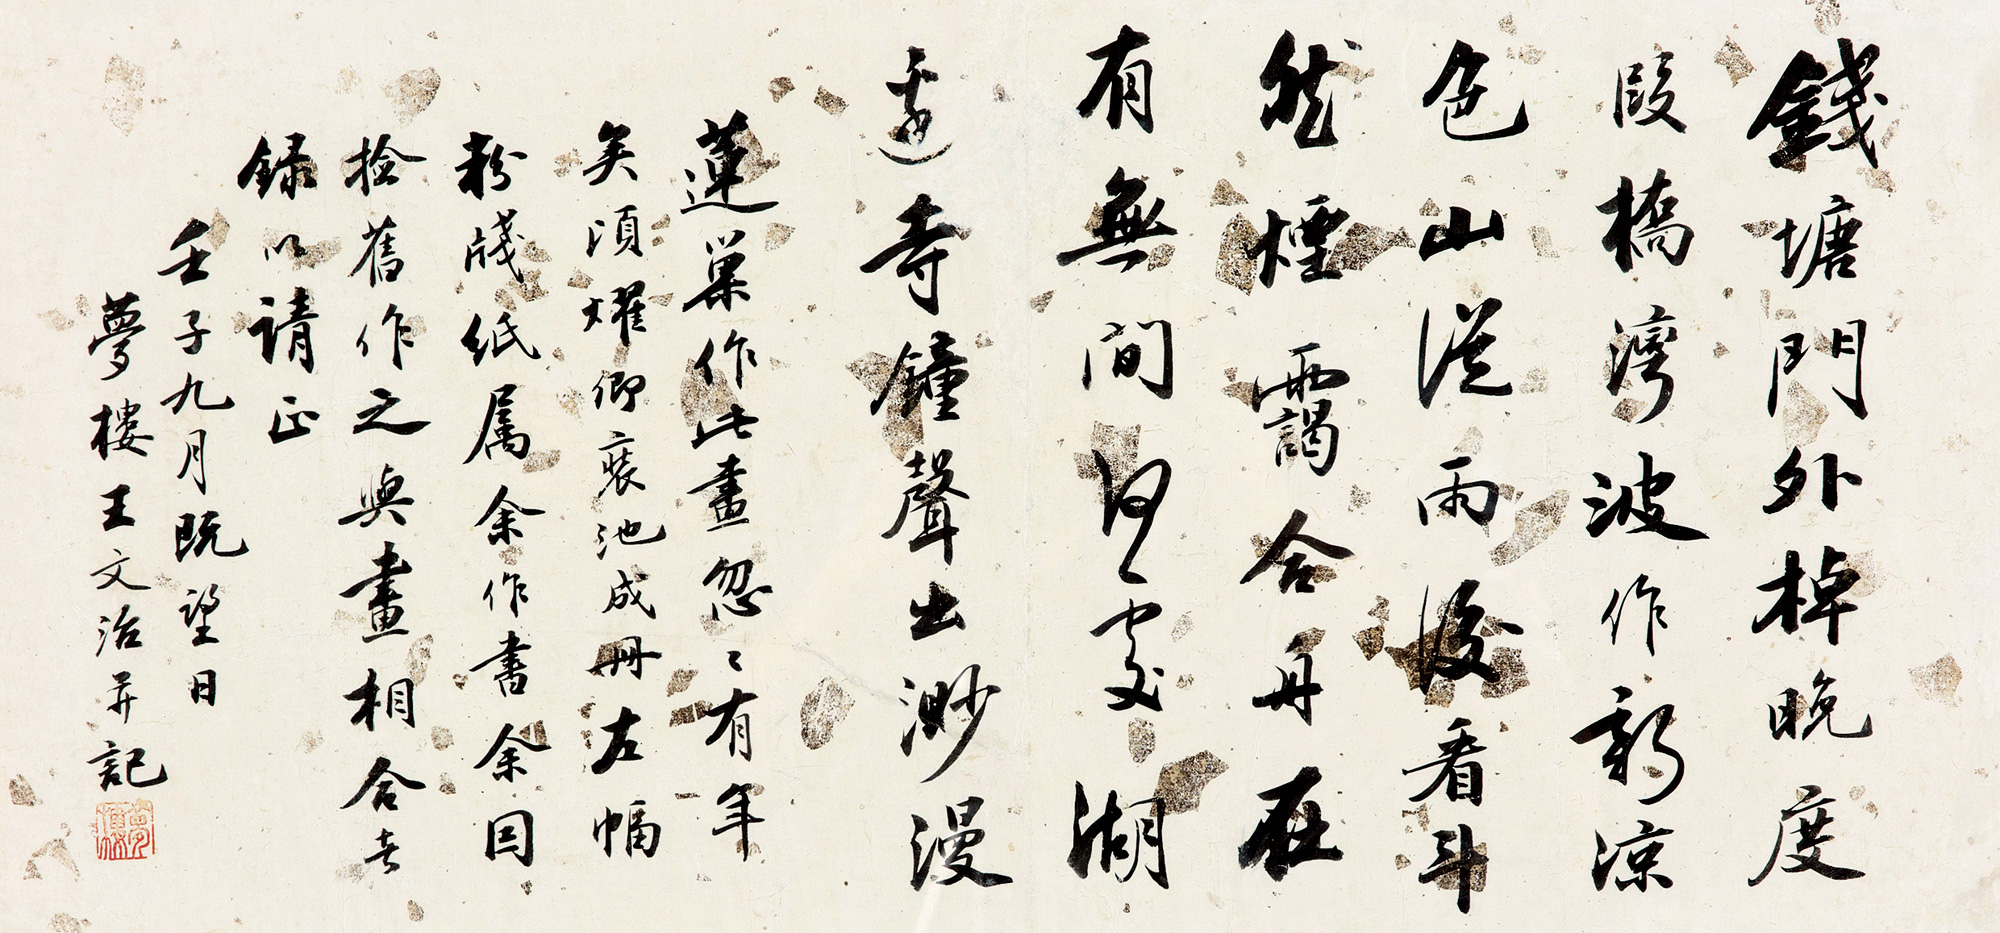 錢塘門外棹晚度
段橋灣波作新涼
色山從雨後看斗
然煙靄合舟在
有無間何處湖
邊寺鐘聲出渺漫
蓮巢作此畫忽〻有年
矣頃燿卿裝池成冊左幅
粉牋紙属余作書余因
撿舊作之與畫相合者
録以請正
壬子九月既望日
夢樓王文治并記
夢樓